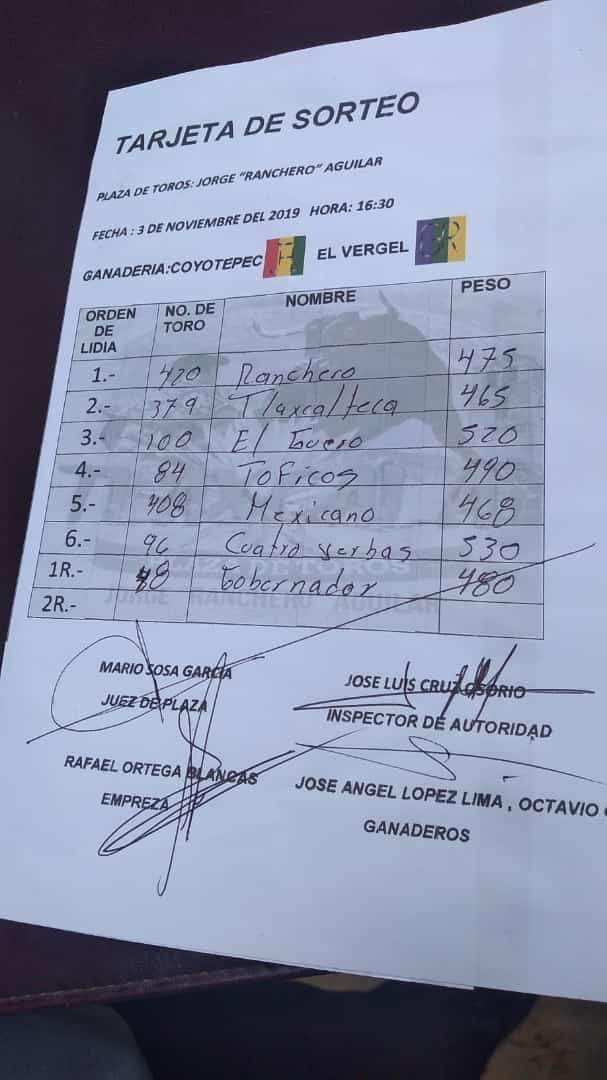 TARJETA DE SORTEO
PLAZA DE TOROS: JORGE "RANCHERO" AGUILAR
FECHA : 3 DE NOVIEMBRE DEL 2019 HORA: 16:30
GANADERIA:COYOTEPEC EL VERGEL
ORDEN DE LIDIA NO. DE TORO NOMBRE PESO
1.- 420 Ranchero 475
2.- 379 Tlaxcalteca 465
3.- 100 El Guero 520
4.- 84 Toficos 490
5.- 408 Mexicano 468
6.- 96 Cuatro yerbas 530
1R.- 48 Gobernador 480
2R.-
PLAZA DE TOROS
JORGE RANCHERO AGUILAR
MARIO SOSA GARCIA JOSE LUIS CRUZ OSORIO
JUEZ DE PLAZA INSPECTOR DE AUTORIDAD
RAFAEL ORTEGA BLANCAS JOSE ANGEL LOPEZ LIMA , OCTAVIO
EMPREZA GANADEROS